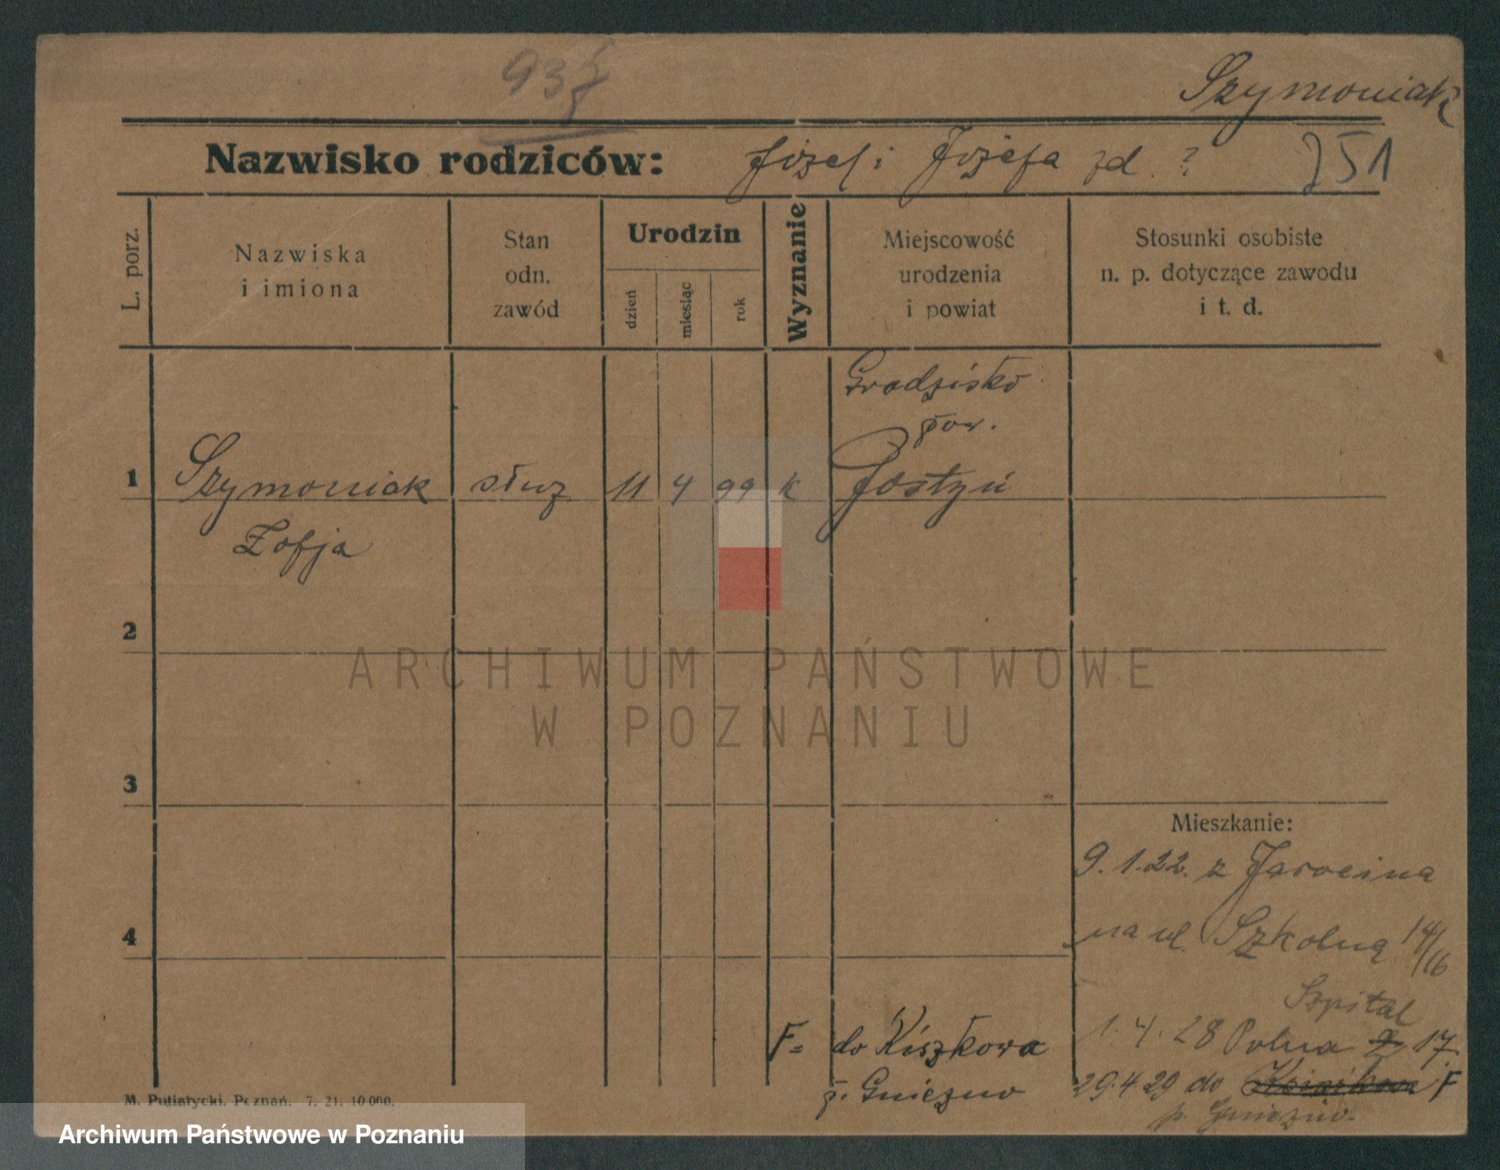 Szymoniak
Nazwisko rodziców: Józef i Józefa zd. ?
251
L. porz.
Nazwiska
i imiona
Stan
odn.
zawód
Urodzin
dzień
miesiąc
rok
Wyznanie
Miejscowość
urodzenia
i powiat
Stosunki osobiste
n. p. dotyczące zawodu
i t. d.
Gradzisko
pow.
1 Szymoniak służ 11 4 99 k Gostyń
Zofja
2
ARCHIWUM PAŃSTWOWE
W POZNANIU
3
Mieszkanie:
9.1.22. z Jarocina
4
na ul. Szkolną 14/16
Szpital
1.4.28 Polna 17.
F= do Kiszkowa
p. Gniezno
29.4.29 do F
p. Gniezno.
M. Putiatycki, Poznań. 7. 21. 10 000.
Archiwum Państwowe w Poznaniu